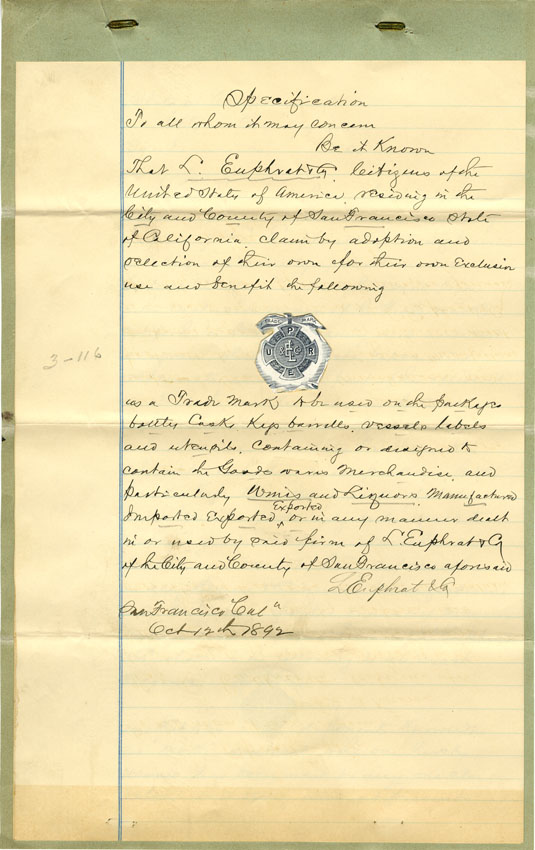 Specification
To all whom it may concern
Be it Known
That L. Euphrat & Co. Citizens of the
United States of America, residing in the
City and County of San Francisco State
of California. claim by adoption and
selection of their own for their own Exclusive
use and benefit the following
TRADE MARK
P
U R
E
3-116
as a Trade Mark to be used on the packages
bottles Casks Kegs barrells. vessels labels
and utensils. Containing or designed to
contain the Goods wares Merchandise and
particularly Wines and Liquors. Manufactured
Exported
Imported Exported, or in any manner dealt
in or used by said firm of L. Euphrat & Co
of the City and County of San Francisco aforesaid
L Euphrat & Co
San Francisco "Cal"
Oct 12th 1892